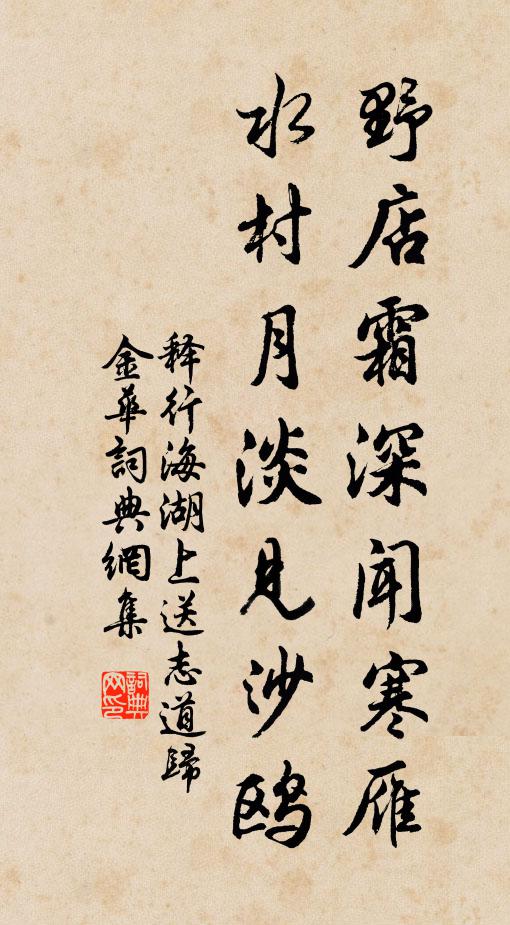 野店霜深闻寒雁
水村月淡见沙鸥
释行海湖上送志道歸
金華詞典網集
詞典
网印